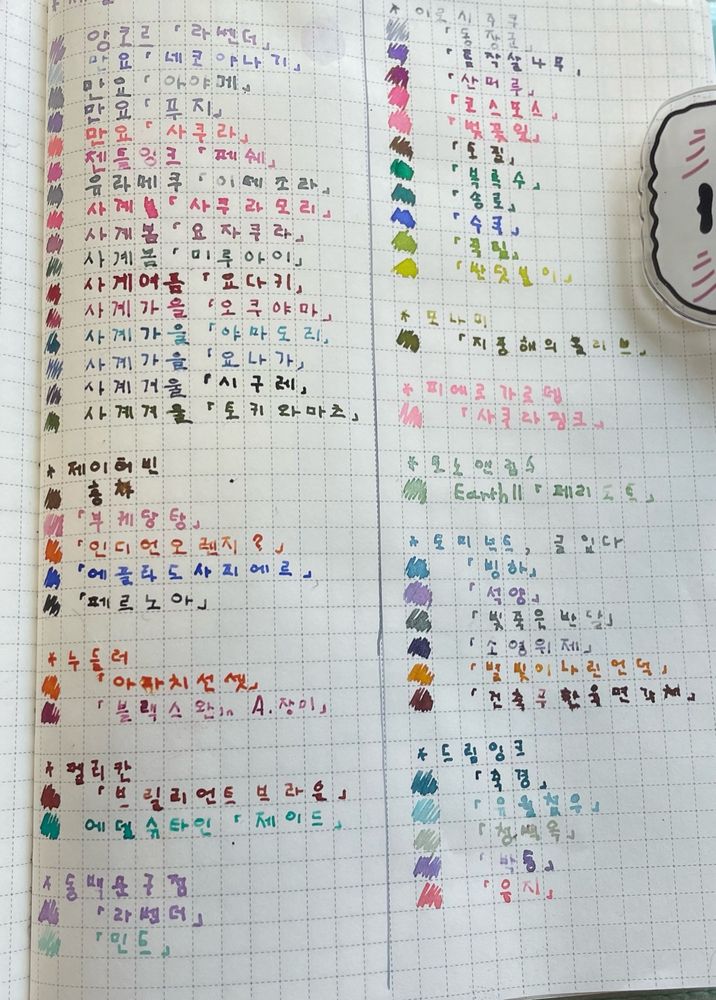 앙코르 「라벤더」
만요 「네코야나기」
만요 「아야메」
만요 「푸지」
만요 「사쿠라」
젠틀잉크 「페쉐」
유라메쿠 「이테조라」
사계봄 「사쿠라모리」
사계봄 「요자쿠라」
사계봄 「미루아이」
사계여름 「요다키」
사계가을 「오쿠야마」
사계가을 「야마도리」
사계가을 「요나가」
사계겨울 「시구레」
사계겨울 「토키와마츠」
* 제이허빈
「부케당탕」
「인디언오렌지?」
「에끌라도사피에르」
「페르노아」
* 누들러
「아파치선셋」
「블랙스완」 A.장미」
* 펠리칸
「브릴리언트브라운」
에델슈타인 「제이드」
* 동백문구점
「라벤더」
「민트」
* 이로시주쿠
「동장군」
「산머루」
「코스모스」
「벚꽃잎」
「도필」
「녹록수」
「송로」
「수국」
「죽림」
「반딧불이」
* 모나미
「지중해의올리브」
* 피에르가르뎅
「사쿠라핑크」
* 도노앤립스
Earth II 「페리도트」
* 도미넌트, 글입다
「빙하」
「석양」
「빛죽은반달」
「소영위제」
「별빛이나린언덕」
「건축무한육면각체」
* 드림잉크
「축경」
「유월철우」
「청백옥」
「박동」
「응시」